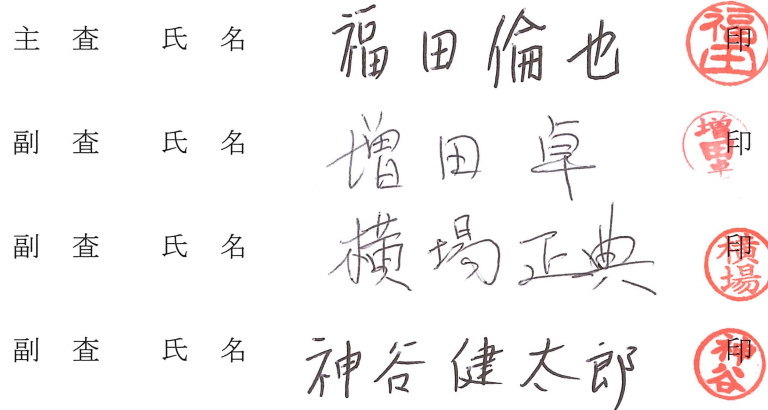 主査 氏名 福田倫也 印 福田
副査 氏名 増田卓 印 増田卓
副査 氏名 横場正典 印 横場
副査 氏名 神谷健太郎 印 神谷